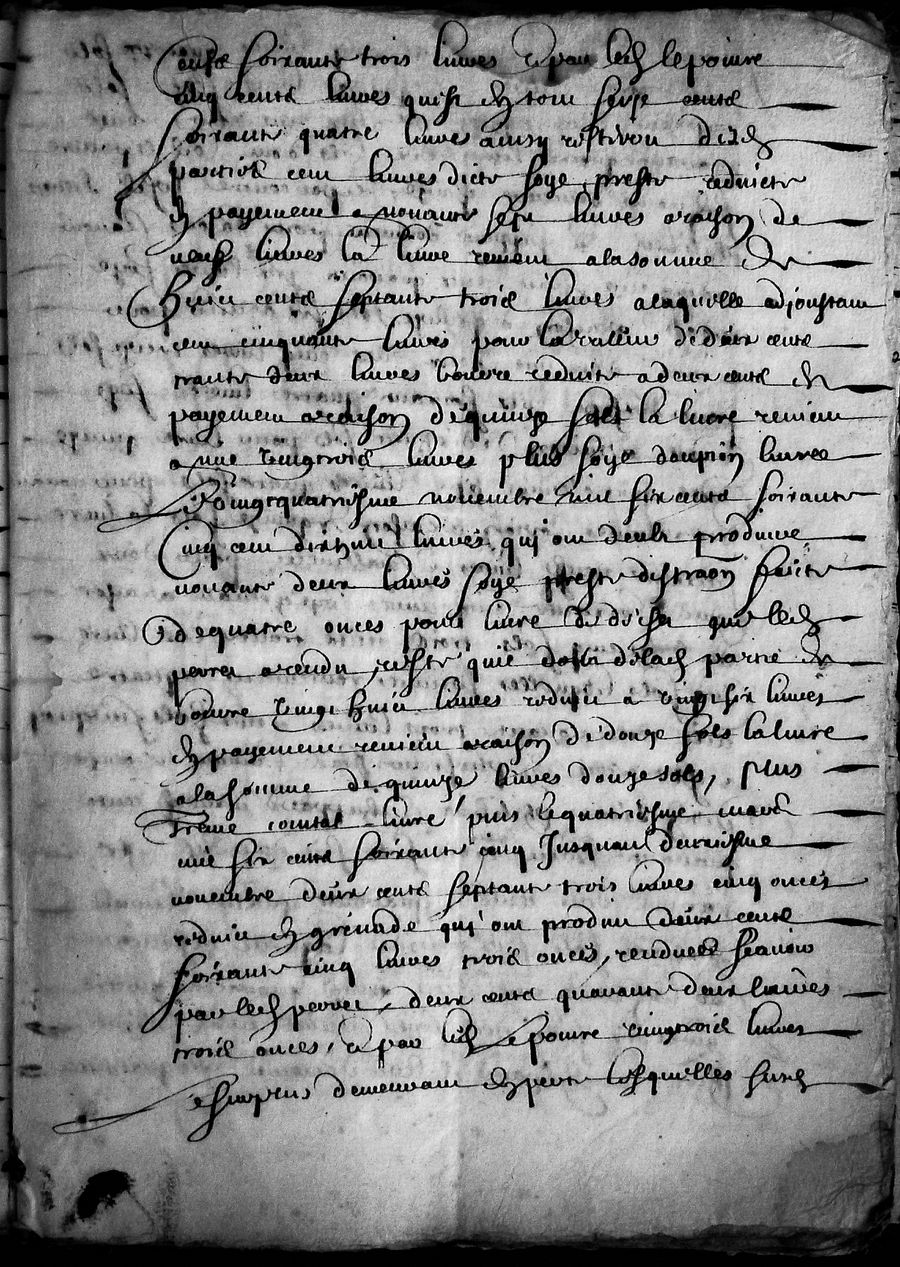 cents soixante trois livres et par led lepoivre
cinq cents livres quist en tout seize cents
soixante quatre livres ainsy resteron desd
parties cent livres dicte soye preste reduicte
en payement a nonante sept livres a raison de
neuf livres la livre revient a la somme de
huict cents septante trois livres a laquelle adjoustant
cent cinquante livres pour la valleur de deux cents
trante deux livres bourre reduite a deux cents en
payement a raison de quinze sols la livre revient
a mil vingt trois livres plus soye doupion livree
le vingt quatriesme novembre mil six cents soixante
cinq cent dix huict livres qui ont deub produire
nonante deux livres soye preste distraon faicte
de quatre onces pour livre de deschet que led
perret a rendu reste quil doibt de lad partie de
bourre vingt huict livres reduict a vingt six livres
en payement revient a raison de douze sols la livre
a la somme de quinze livres douze sols, plus
trame comtat livré puis le quatriesme mars
mil six cents soixante cinq jusquau dernisme
novembre deux cents septante trois livres cinq onces
reduict en grenade qui ont produit deux cents
soixante cinq livres trois onces, rendues scavoir
par led perret, deux cents quarante deux livres
trois onces, et par led lepoivre vingt trois livres
le surplus demeurant en perte lesquelles susd